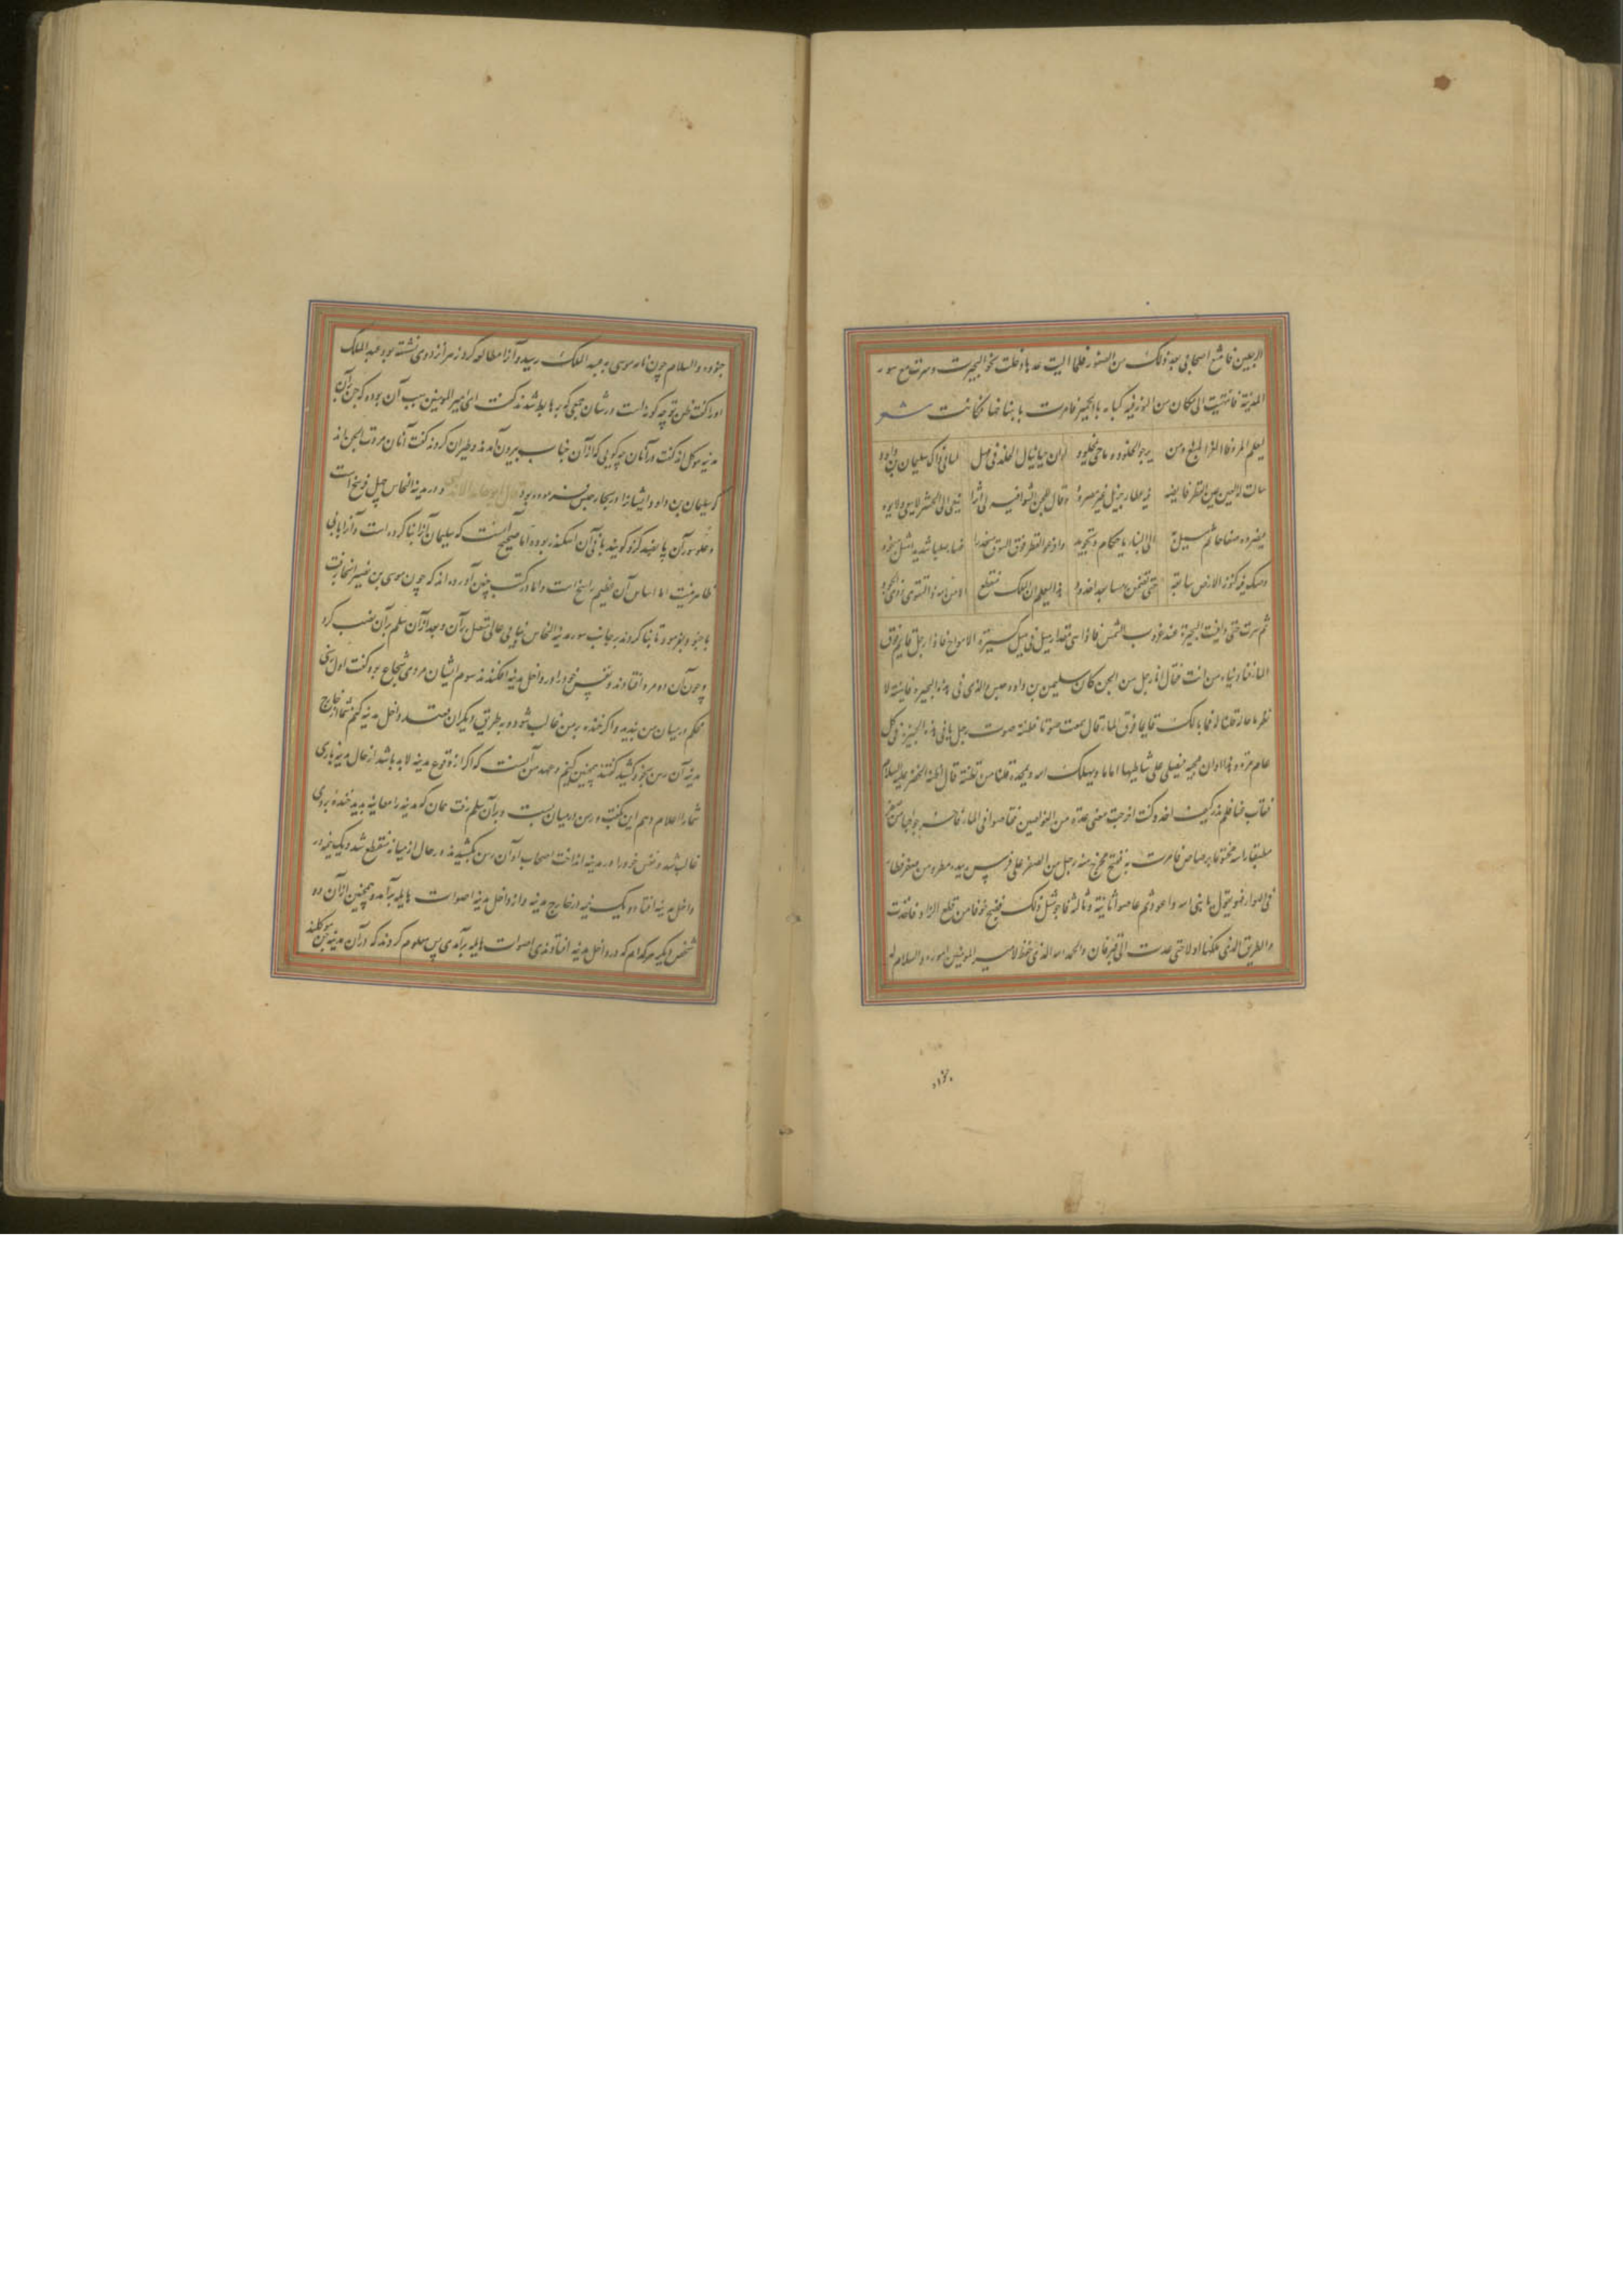 اربعین فامتنع اصحابی بعد ذلک من الصعود فلما ایست عدها دخلت نحو البحیرت وسرت مع سور
المدینة فانتهیت الی مکان من السور فیه کتابه بالحمیریه فامرت بانتساخها فکانت شعر
لیعلم المرء ذا العز المنیع ومن یرجو الخلود وما حی بمخلود لو ان حیا ینال الخلد فی مهل لنال ذاک سلیمان بن داود
سالت له العین عین القطر فایضه فیه عطاء جزیل غیر مصرود وقال للجن انشوا فیه لی اثرا یبقی الی الحشر لا یبلی ولا یود
فصیروه صفاحا ثم میل به الی البناء باحکام وتجوید وافرغوا القطر فوق السور منحدرا فصار صلبا شدیدا مثل صیخود
وصب فیه کنوز الارض سابقه حتی تضمن رمسا بعد اخدود هذا لیعلم ان الملک منقطع الا من الله ذی التقوی وذی الجود
ثم سرت حتی وافیت البحیرة عند غروب الشمس فاذا هی مقدار میل فی میل کثیرة الامواج فاذا رجل قایم فوق
الماء فنادیناه من انت فقال انا رجل من الجن کان سلیمن بن داود حبس والدی فی هذه البحیره فاتیته لا
نظر ما حاله قلنا له فما بالک قایما فوق الماء قال سمعت صوتا فظننته صوت رجل یاتی هذه البحیرة فی کل
عام مرة وهذا اوان مجیه فیصلی علی شاطیها ایاما ویهلل الله ویمجده قلنا من تظنه قال اظنه الخضر علیه السلام
فغاب عنا فلم ندر کیف اخذ وکنت اخرجت معی عدة من الغواصین فغاصوا فی الماء فاخرجوا حبا من صفر
مطبقا راسه مختوما برصاص فامرت به ففتح فخرج منه رجل من الصفر علی فرس بیده مطرد من صفر فطار
فی الهواء وهو یقول یا نبی الله لا اعود ثم غاصوا ثانیة وثالثة فاخرجوا مثل ذلک فضج خوفا من قطع الزاد فاخذت
والطریق الذی سلکتها اولا حتی عدت الی قیروان والحمد الله الذی حفظ لامیر المومنین اموره والسلام له
جنوده
جنوده والسلام چون نامه موسی به عبد الملک رسید و آنرا مطالعه کرد زهرا نزد وی نشسته بود عبد الملک
او را گفت ظن تو چه گونه است در شان جمعی که برها بط شدند گفت ای امیر المومنین سبب آن بوده که جن بر آن
مدینه موکل اند گفت در آنان چه گویی که از آن حباب بیرون آمدند وطیران کردند گفت آنان مردة الجن اند
که سلیمان بن داود ایشان را در بحار حبس فرموده بود قال ابو حامد الاندلسی و دور مدینة النحاس چهل فرسخ است
وعلو سور آن پانصد گز و گویند بانی آن اسکندر بوده اما صحیح آنست که سلیمان آنرا بنا کرده است و آنرا بابی
ظاهر نیست اما اساس آن عظیم راسخ است واما در کتب چنین آورده اند که چون موسی بن نصیر انجا رفت
با جنود بفرمود تا بنا کردند بر جانب سور مدینة النحاس بنایی عالی متصل بر آن وبعد از آن سلم بر آن نصب کرد
وچون آن دو مرد افتادند ونفس خود را در داخل مدینه افکندند سوم ایشان مردی شجاع بود گفت اول رسنی
محکم در میان من بندید واگر خنده بر من غالب شود و به طریق دیگران قصد داخل مدینه کنم شما از خارج
مدینه آن رسن بخود کشید گفتند همچنین کنیم وعهد من آنست که اگر از وقوع مدینه لابد باشد از حال مدینه باری
شما را اعلام دهم این گفت ورسن در میان بست وبر آن سلم رفت همان که مدینه را معاینه بدید خنده بر وی
غالب شد ونفس خود را در مدینه انداخت اصحاب او آن رسن بکشیدند در حال از میانه منقطع شد ویک نیمه در
داخل مدینه افتاد و یک نیمه در خارج مدینه واز داخل مدینه اصوات هایله برآمد وهمچنین از آن ده
شخص دیگر هر کدام که در داخل مدینه افتادندی اصوات هایله برآمدی پس معلوم کردند که در آن مدینه جن موکلند